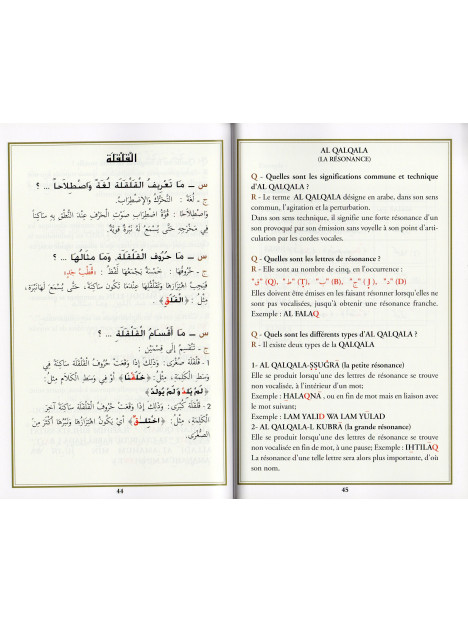 القَلْقَلَة
س ــ مَا تَعْرِيفُ القَلْقَلَة لُغَةً وَاصْطِلَاحاً ... ؟
ج - لُغَةً : التَّحَرُّكُ وَالاِضْطِرَابُ.
وَاصْطِلَاحاً : قُوَّةُ اضْطِرَابِ صَوْتِ الْحَرْفِ عِنْدَ النُّطْقِ بِهِ سَاكِناً
فِي مَخْرَجِهِ حَتَّى يُسْمَعَ لَهُ نَبْرَةٌ قَوِيَّةٌ.
س ــ مَا حُرُوفُ القَلْقَلَةِ وَمَا مِثَالُهَا ... ؟
ج - حُرُوفُهَا : خَمْسَةٌ يَجْمَعُهَا لَفْظُ : «قُطْبُ جَدٍ»
فَيَجِبُ اهْتِزَازُهَا وَقَلْقَلَتُهَا عِنْدَمَا تَكُونُ سَاكِنَةً، حَتَّى يُسْمَعَ لَهَا نَبْرَة،
مِثْلُ : ﴿الْفَلَقِ﴾
س ــ مَا أَقْسَامُ القَلْقَلَةِ ... ؟
ج - تَنْقَسِمُ إِلَى قِسْمَيْنِ :
1 - قَلْقَلَة صُغْرَى: وَذَلِكَ إِذَا وَقَعَتْ حُرُوفُ القَلْقَلَةِ سَاكِنَةً فِي
وَسَطِ الْكَلِمَةِ، مِثْلُ: ﴿خَلَقْنَا﴾ أَوْ فِي وَسَطِ الْكَلَامِ مِثْلُ:
﴿لَمْ يَلِدْ وَلَمْ يُولَدْ﴾
2 - قَلْقَلَة كُبْرَى: وَذَلِكَ إِذَا وَقَعَتْ حُرُوفُ القَلْقَلَةِ سَاكِنَةً آخِرَ
الْكَلِمَةِ، مِثْلُ : ﴿اخْتِلَـقْ﴾ أَيْ يَكُونُ اهْتِزَازُهَا وَنَبْرَتُهَا أَكْثَرَ مِنَ
الصُّغْرَى.
44
AL QALQALA
(LA RÉSONANCE)
Q - Quelles sont les significations commune et technique
d'AL QALQALA ?
R - Le terme AL QALQALA désigne en arabe, dans son sens
commun, l'agitation et la perturbation.
Dans son sens technique, il signifie une forte résonance d'un
son provoqué par son émission sans voyelle à son point d'arti-
culation par les cordes vocales.
Q - Quelles sont les lettres de résonance ?
R - Elle sont au nombre de cinq, en l'occurrence :
"ق" (Q), "ط" (Ṭ), "ب" (B), "ج" (J), "د" (D)
Elles doivent être émises en les faisant résonner lorsqu'elles ne
sont pas vocalisées, jusqu'à obtenir une résonance franche.
Exemple : AL FALAQ
Q - Quels sont les différents types d'AL QALQALA ?
R - Il existe deux types de la QALQALA
1- AL QALQALA-ṢṢUĠRĀ (la petite résonance)
Elle se produit lorsqu'une des lettres de résonance se trouve
non vocalisée, à l'intérieur d'un mot;
Exemple : ḪALAQNĀ , ou en fin de mot mais en liaison avec
le mot suivant;
Exemple : LAM YALID WA LAM YŪLAD
2- AL QALQALA-L KUBRĀ (la grande résonance)
Elle se produit lorsqu'une des lettres de résonance se trouve
non vocalisée en fin de mot, à une pause; Exemple : IḪTILĀQ
La résonance d'une telle lettre sera alors plus importante, d'où
son nom.
45